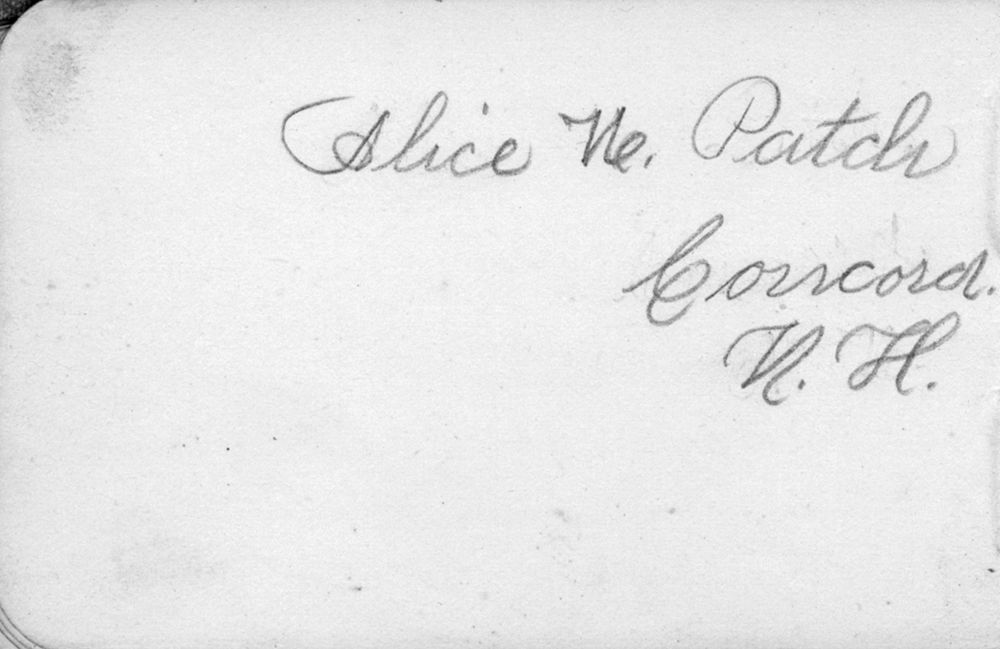 Alice Ne. Patch
Concord.
N. H.